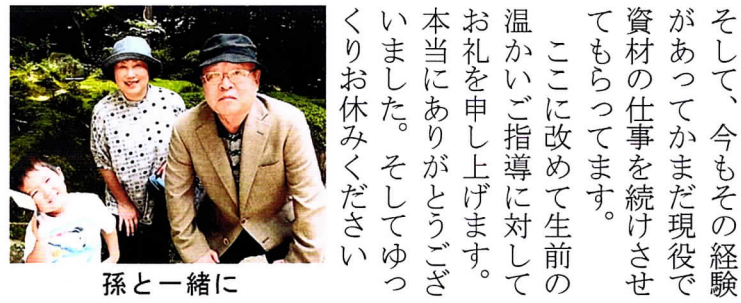 そして、今もその経験
があってかまだ現役で
資材の仕事を続けさせ
てもらってます。
ここに改めて生前の
温かいご指導に対して
お礼を申し上げます。
本当にありがとうござ
いました。そしてゆっ
くりお休みください
孫と一緒に